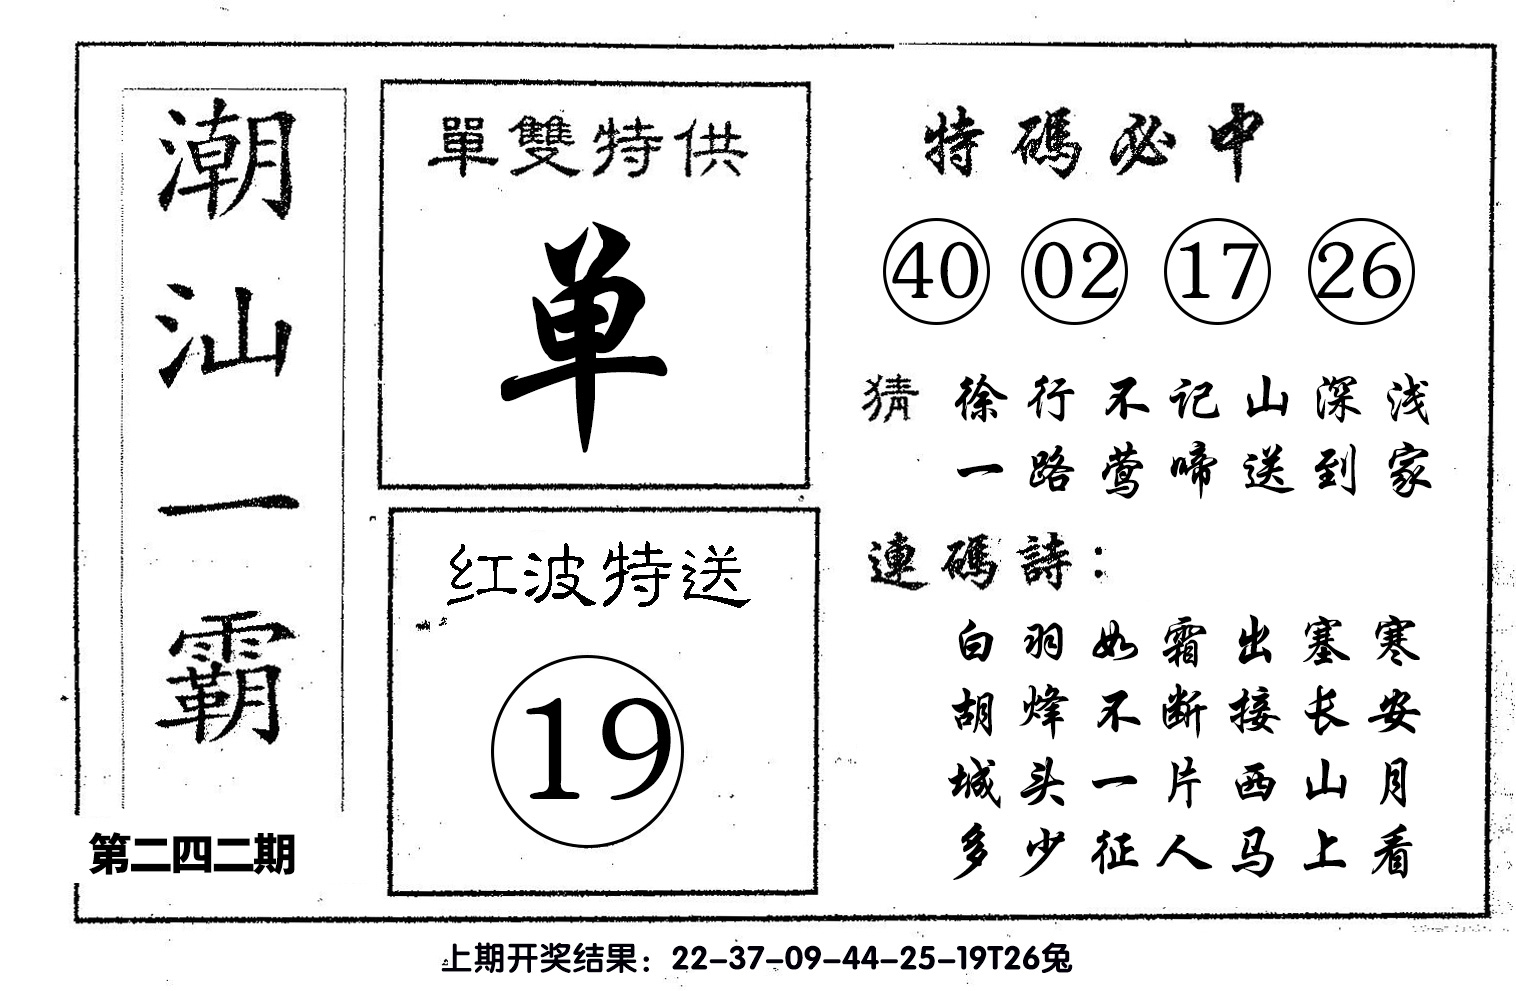 潮汕一霸
第二四二期
單雙特供
单
红波特送
19
特碼必中
40 02 17 26
猜 徐行不记山深浅
一路莺啼送到家
連碼詩：
白羽如霜出塞寒
胡烽不断接长安
城头一片西山月
多少征人马上看
上期开奖结果：22-37-09-44-25-19T26兔